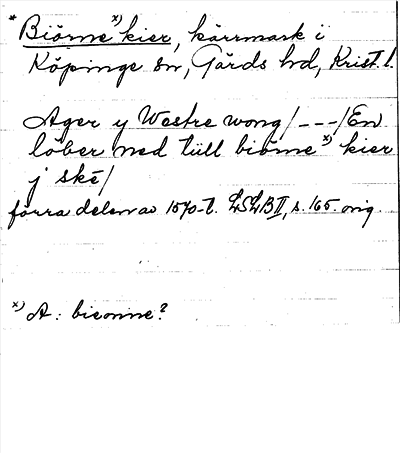 * Biörne x) kier, kärrmark i
Köpinge sn, Gärds hd, Krist. l.
Ager y Westre wong/---/En
löber ned till biörne x) kier
j ske/
förra delen av 1570-t. LSLB II, s. 165. orig.
x) A: bieonne?